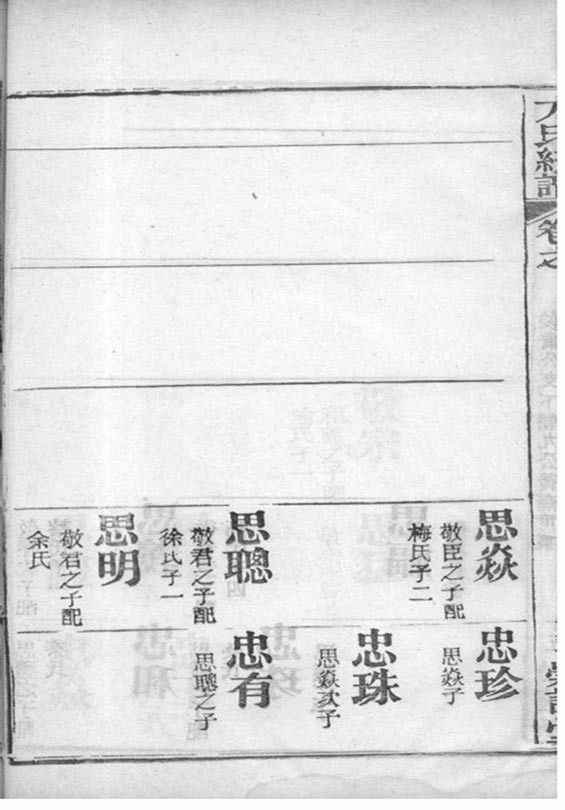 卷之
思焱
敬臣之子配
梅氏子二
思聰
敬君之子配
徐氏子一
思明
敬君之子配
余氏
忠珍
思焱子
忠珠
思焱次子
忠有
思聰之子